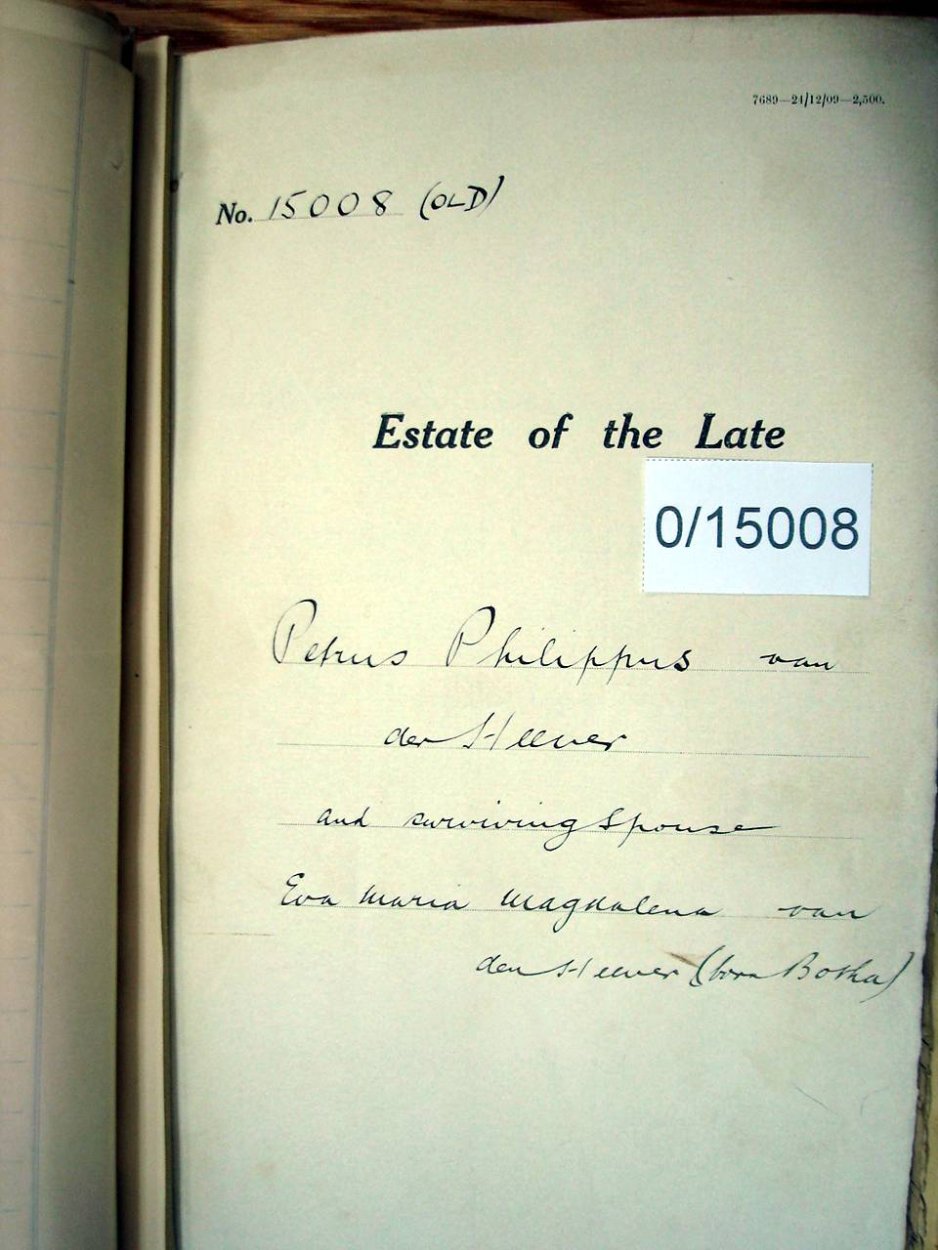 7689—24/12/09—2,500.
No. 15008 (OLD)
Estate of the Late
0/15008
Petrus Philippus van
der Heever
and surviving Spouse
Eva Maria Magdalena van
den Heever (born Botha)